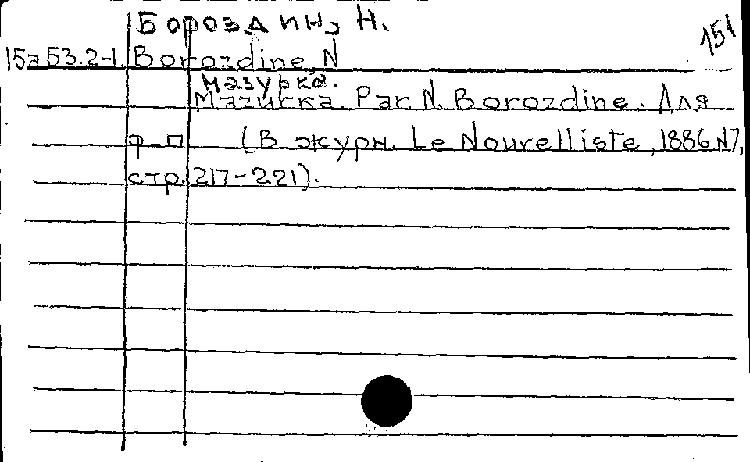 Бороздин, Н.
151
15г53.2-1. Borozdine, N
Мазурка.
Mazurka. Par N. Borozdine. Для
ф-п (В журн. Le Nouvelliste, 1886 N7,
стр. 217-221).